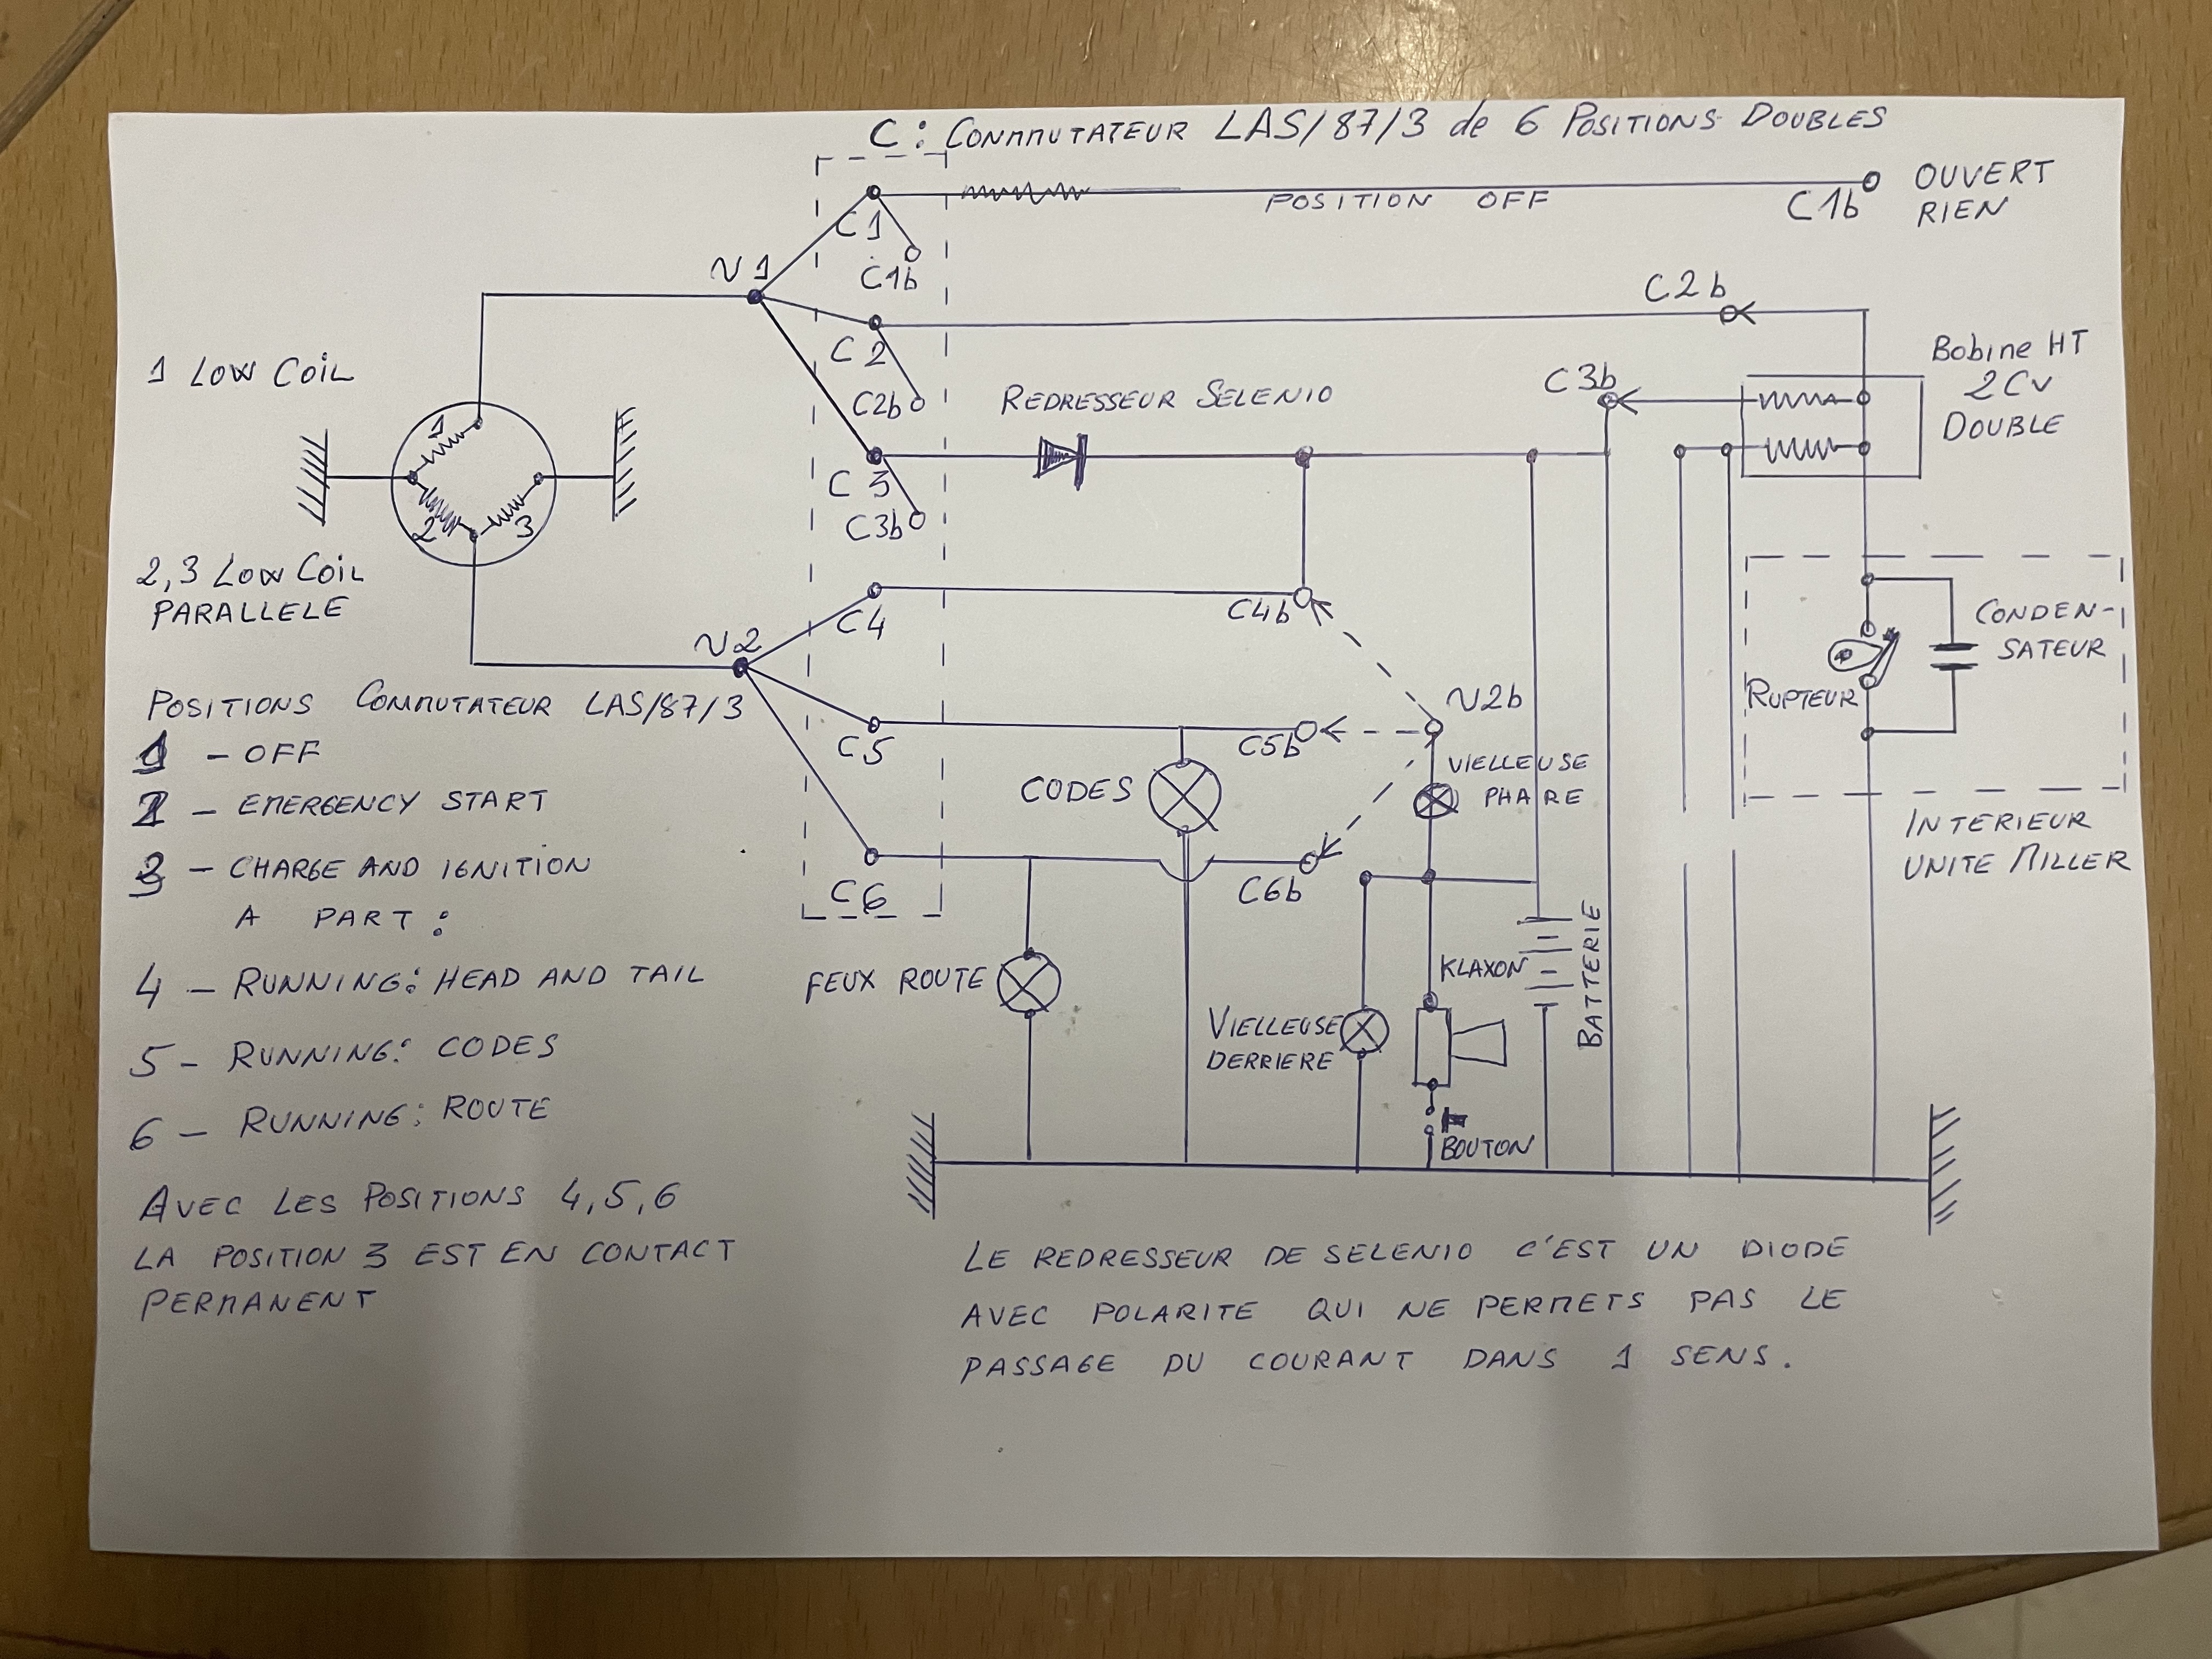 C : CONMUTATEUR LAS/87/3 de 6 POSITIONS DOUBLES
C1
C1b
POSITION OFF
C1b
OUVERT
RIEN
N1
C2
C2b
C2b
1 LOW COIL
REDRESSEUR SELENIO
C3b
Bobine HT
2CV
DOUBLE
1
2
3
C3
C3b
2,3 LOW COIL
PARALLELE
C4
C4b
CONDEN-
SATEUR
RUPTEUR
N2
N2b
C5
C5b
CODES
VIELLEUSE
PHARE
INTERIEUR
UNITE MILLER
C6
C6b
FEUX ROUTE
KLAXON
BATTERIE
VIELLEUSE
DERRIERE
BOUTON
POSITIONS COMMUTATEUR LAS/87/3
1 - OFF
2 - EMERGENCY START
3 - CHARGE AND IGNITION
A PART :
4 - RUNNING: HEAD AND TAIL
5 - RUNNING: CODES
6 - RUNNING: ROUTE
AVEC LES POSITIONS 4,5,6
LA POSITION 3 EST EN CONTACT
PERMANENT
LE REDRESSEUR DE SELENIO C'EST UN DIODE
AVEC POLARITE QUI NE PERMETS PAS LE
PASSAGE DU COURANT DANS 1 SENS.